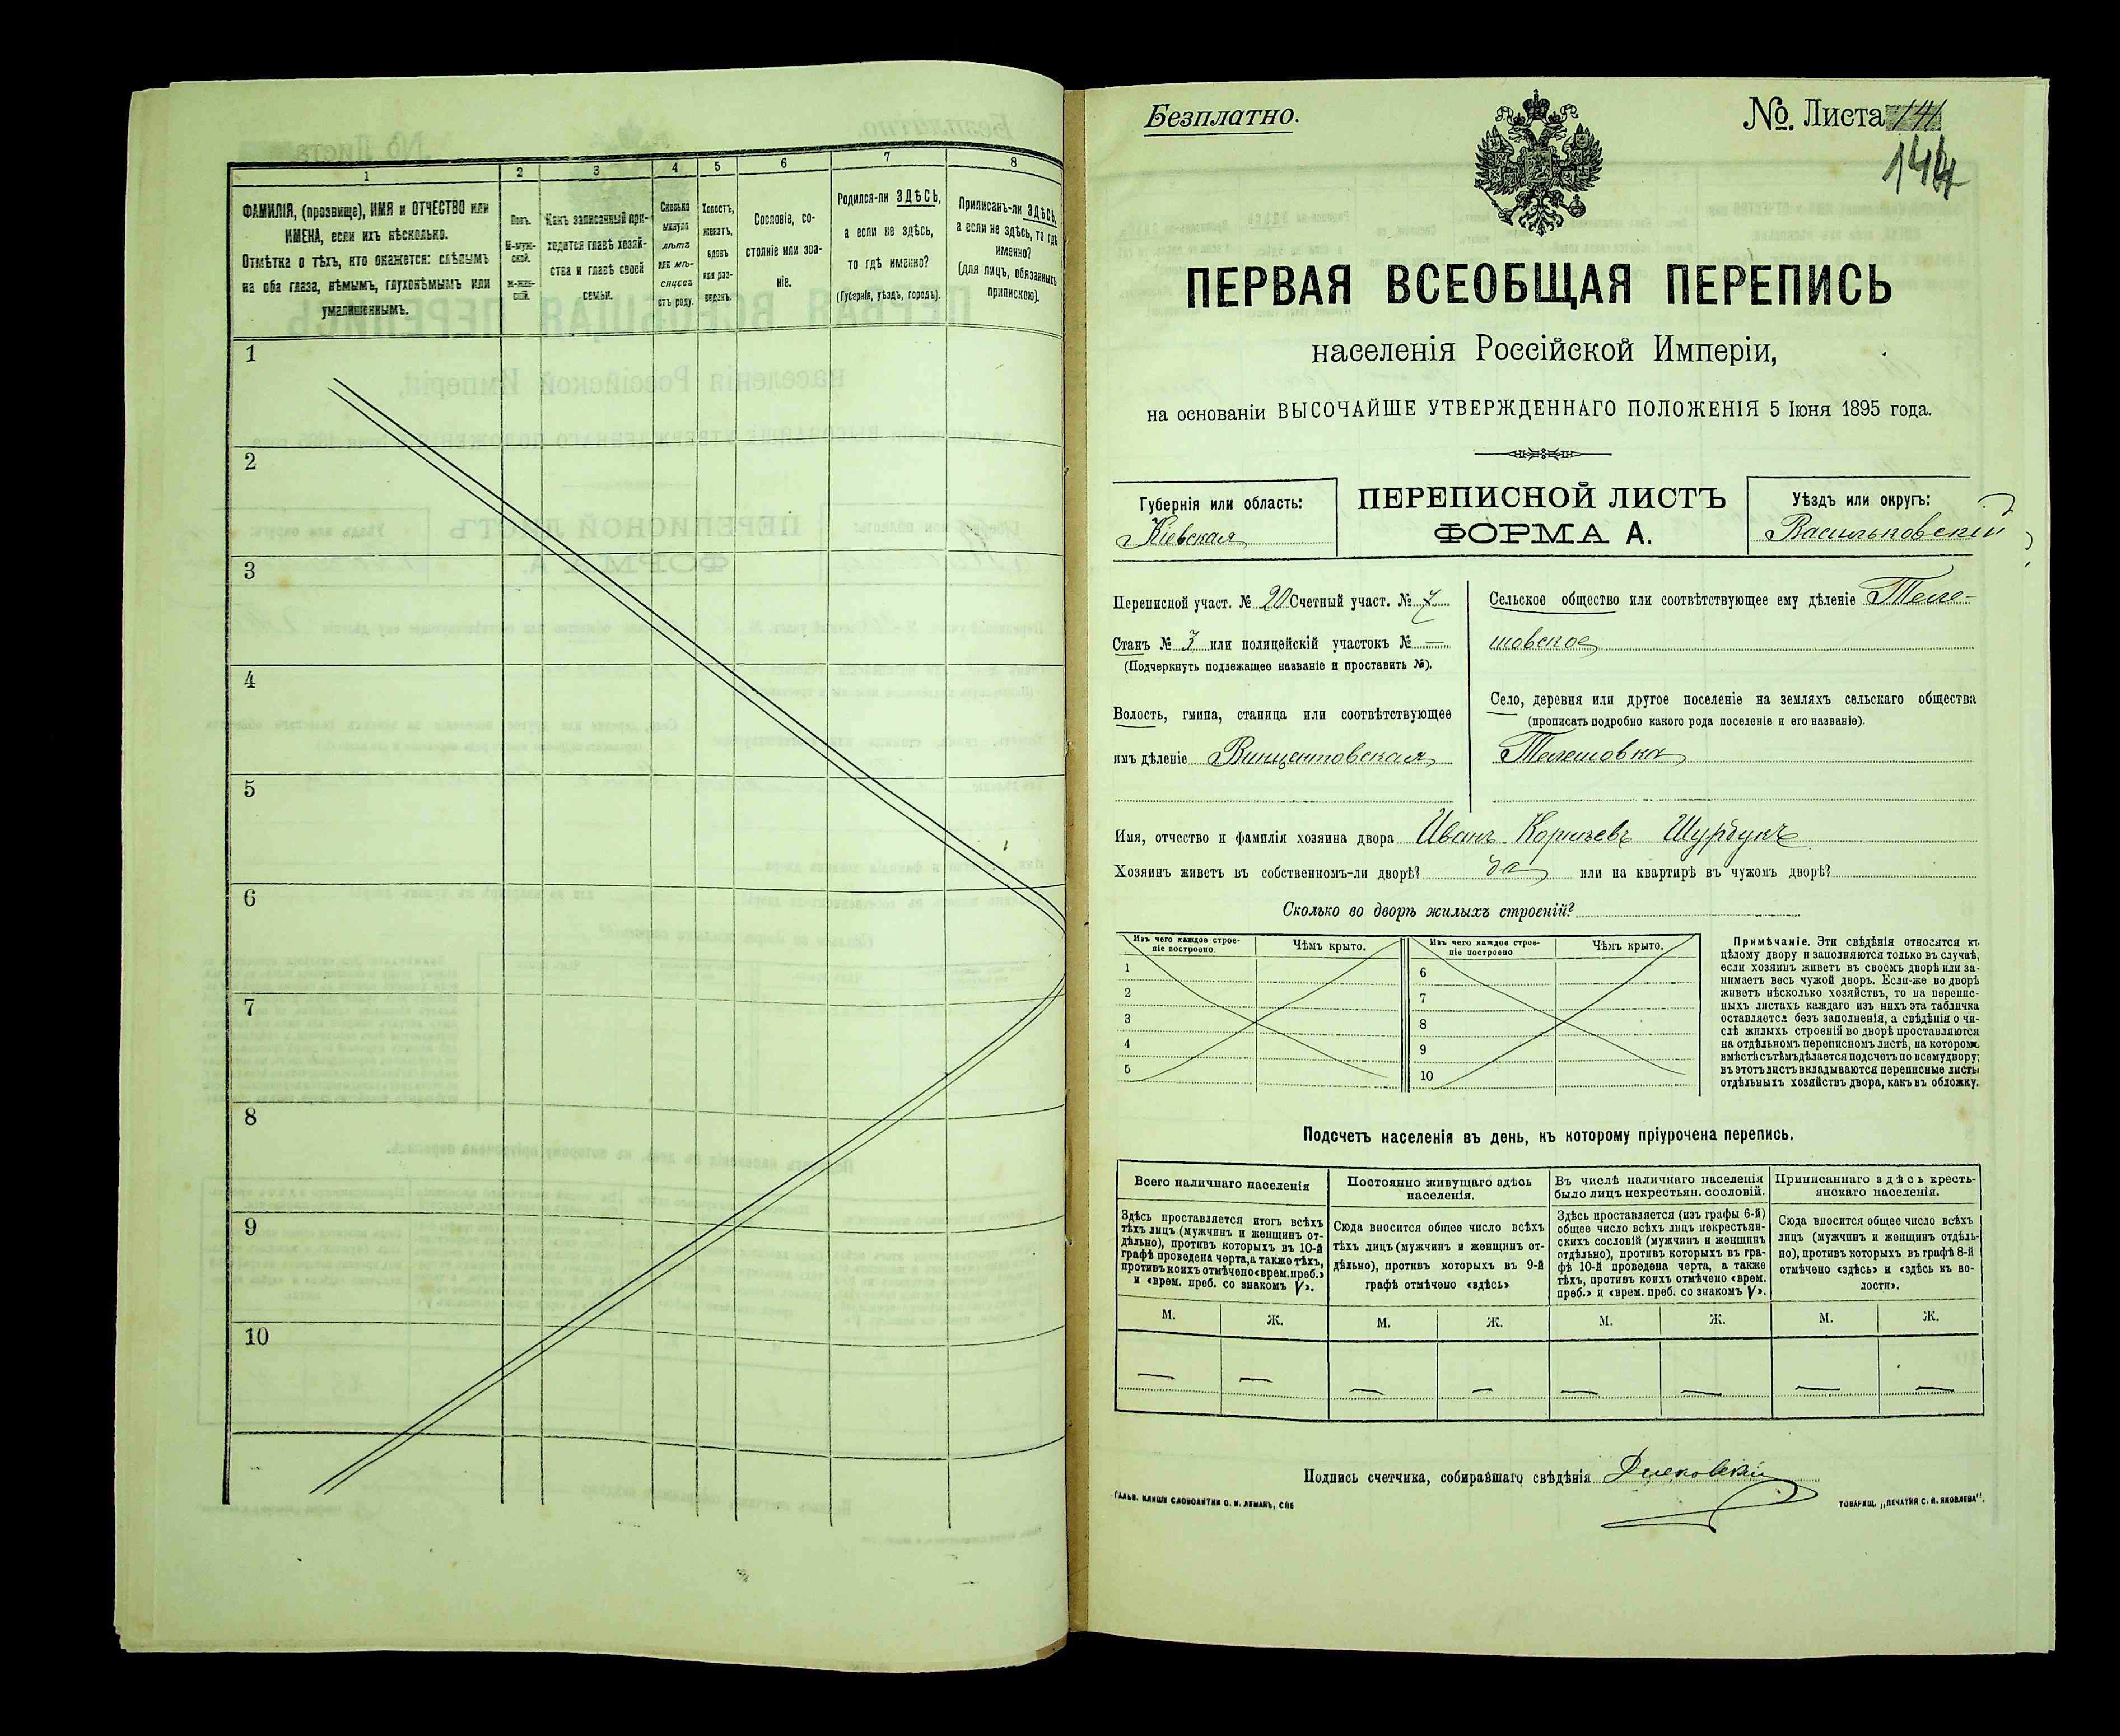 1
2
3
4
5
6
7
8
ФАМИЛІЯ, (прозвище), ИМЯ и ОТЧЕСТВО или
ИМЕНА, если ихъ нѣсколько.
Отмѣтка о тѣхъ, кто окажется: слѣпымъ
на оба глаза, нѣмымъ, глухонѣмымъ или
умалишеннымъ.
Полъ.
М-муж-
ской.
Ж-жен-
скій.
Какъ записанный при-
ходится главѣ хозяй-
ства и главѣ своей
семьи.
Сколько
минуло
лѣтъ
или мѣ-
сяцевъ
отъ роду.
Холостъ,
женатъ,
вдовъ
или раз-
веденъ.
Сословіе, со-
стояніе или зва-
ніе.
Родился-ли ЗДѢСЬ,
а если не здѣсь,
то гдѣ именно?
(Губернія, уѣздъ, городъ).
Приписанъ-ли ЗДѢСЬ,
а если не здѣсь, то гдѣ
именно?
(для лицъ, обязанныхъ
припискою).
1
2
3
4
5
6
7
8
9
10
Безплатно.
№. Листа 141
144
ПЕРВАЯ ВСЕОБЩАЯ ПЕРЕПИСЬ
населенія Россійской Имперіи,
на основаніи ВЫСОЧАЙШЕ УТВЕРЖДЕННАГО ПОЛОЖЕНІЯ 5 Іюня 1895 года.
Губернія или область:
Кіевская
ПЕРЕПИСНОЙ ЛИСТЪ
ФОРМА А.
Уѣздъ или округъ:
Васильковскій
Переписной участ. № 20 Счетный участ. № 7
Станъ № 3 или полицейскій участокъ № —
(Подчеркнуть подлежащее названіе и проставить №).
Волость, гмина, станица или соотвѣтствующее
имъ дѣленіе Винцентовская
Сельское общество или соотвѣтствующее ему дѣленіе Теле-
шовское
Село, деревня или другое поселеніе на земляхъ сельскаго общества
(прописать подробно какого рода поселеніе и его названіе).
Телешовка
Имя, отчество и фамилія хозяина двора Иванъ Корнѣевъ Шурбукъ
Хозяинъ живетъ въ собственномъ-ли дворѣ? да или на квартирѣ въ чужомъ дворѣ?
Сколько во дворѣ жилыхъ строеній?
Изъ чего каждое строе-
ніе построено.
Чѣмъ крыто.
Изъ чего каждое строе-
ніе построено
Чѣмъ крыто.
1
2
3
4
5
6
7
8
9
10
Примѣчаніе. Эти свѣдѣнія относятся къ
цѣлому двору и заполняются только въ случаѣ,
если хозяинъ живетъ въ своемъ дворѣ или за-
нимаетъ весь чужой дворъ. Если-же во дворѣ
живетъ нѣсколько хозяйствъ, то на перепис-
ныхъ листахъ каждаго изъ нихъ эта табличка
оставляется безъ заполненія, а свѣдѣнія о чи-
слѣ жилыхъ строеній во дворѣ проставляются
на отдѣльномъ переписномъ листѣ, на которомъ
вмѣстѣ съ тѣмъ дѣлается подсчетъ по всему двору;
въ этотъ листъ вкладываются переписные листы
отдѣльныхъ хозяйствъ двора, какъ въ обложку.
Подсчетъ населенія въ день, къ которому пріурочена перепись.
Всего наличнаго населенія
Здѣсь проставляется итогъ всѣхъ
тѣхъ лицъ (мужчинъ и женщинъ от-
дѣльно), противъ которыхъ въ 10-й
графѣ проведена черта, а также тѣхъ,
противъ коихъ отмѣчено «врем. преб.»
и «врем. преб. со знакомъ V».
Постоянно живущаго здѣсь
населенія.
Сюда вносится общее число всѣхъ
тѣхъ лицъ (мужчинъ и женщинъ от-
дѣльно), противъ которыхъ въ 9-й
графѣ отмѣчено «здѣсь»
Въ числѣ наличнаго населенія
было лицъ некрестьян. сословій.
Здѣсь проставляется (изъ графы 6-й)
общее число всѣхъ лицъ некрестьян-
скихъ сословій (мужчинъ и женщинъ
отдѣльно), противъ которыхъ въ гра-
фѣ 10-й проведена черта, а также
тѣхъ, противъ коихъ отмѣчено «врем.
преб.» и «врем. преб. со знакомъ V».
Приписаннаго здѣсь кресть-
янскаго населенія.
Сюда вносится общее число всѣхъ
лицъ (мужчинъ и женщинъ отдѣль-
но), противъ которыхъ въ графѣ 8-й
отмѣчено «здѣсь» и «здѣсь къ во-
лости».
М. Ж. М. Ж. М. Ж. М. Ж.
— — — — — — — —
Подпись счетчика, собиравшаго свѣдѣнія
ГАЛЬВ. КЛИШЕ СЛОВОЛИТНИ О. И. ЛЕМАНЪ, СПБ
ТОВАРИЩ. „ПЕЧАТНЯ С. П. ЯКОВЛЕВА".